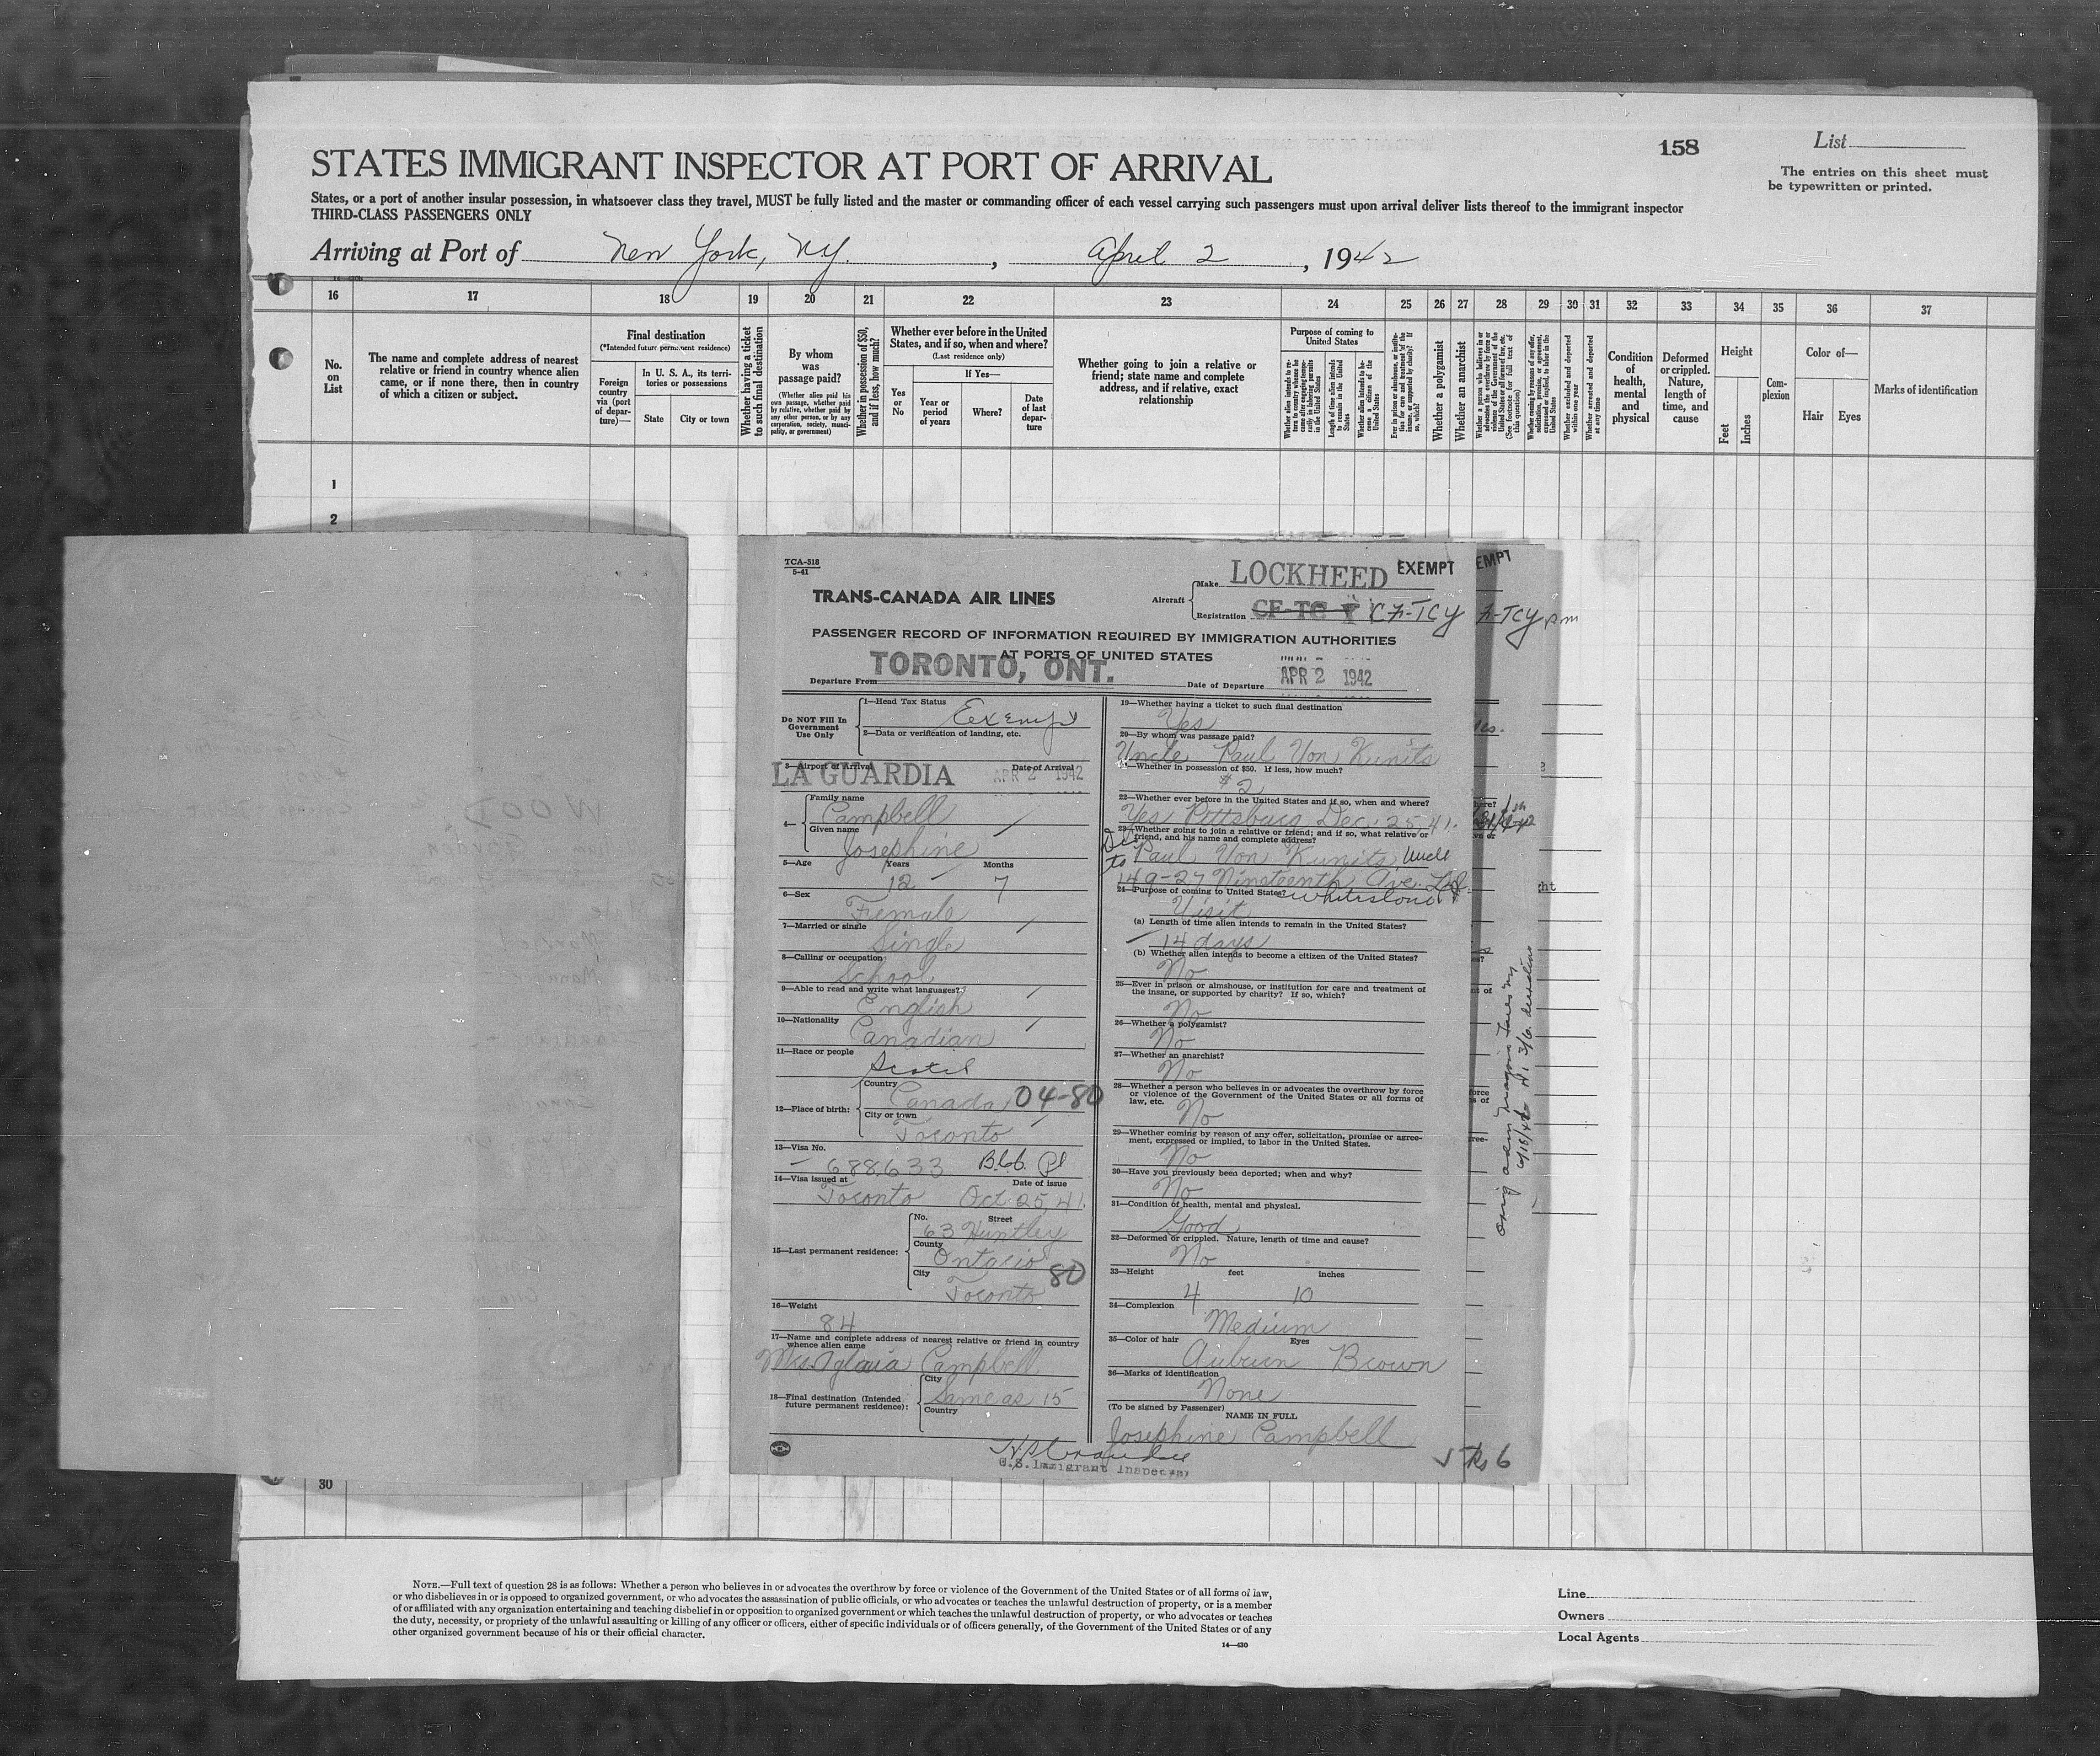 158
List
STATES IMMIGRANT INSPECTOR AT PORT OF ARRIVAL
The entries on this sheet must
be typewritten or printed.
States, or a port of another insular possession, in whatsoever class they travel, MUST be fully listed and the master or commanding officer of each vessel carrying such passengers must upon arrival deliver lists thereof to the immigrant inspector
THIRD-CLASS PASSENGERS ONLY
Arriving at Port of New York, N.Y. , April 2 , 1942
16 17 18 19 20 21 22 23 24 25 26 27 28 29 30 31 32 33 34 35 36 37
No. on List
The name and complete address of nearest
relative or friend in country whence alien
came, or if none there, then in country
of which a citizen or subject.
Final destination
(*Intended future permanent residence)
Foreign
country
via (port
of depar-
ture)—
In U. S. A., its terri-
tories or possessions
State
City or town
Whether having a ticket
to such final destination
By whom
was
passage paid?
(Whether alien paid his
own passage, whether paid
by relative, whether paid by
any other person, or by any
corporation, society, munici-
pality, or government)
Whether in possession of $50,
and if less, how much?
Whether ever before in the United
States, and if so, when and where?
(Last residence only)
If Yes—
Yes
or
No
Year or
period
of years
Where?
Date
of last
depar-
ture
Whether going to join a relative or
friend; state name and complete
address, and if relative, exact
relationship
Purpose of coming to
United States
Length of time alien intends
to remain in the United
States
Whether alien intends to be-
come a citizen of the
United States
Whether a polygamist
Whether an anarchist
Whether excluded and deported
within one year
Whether arrested and deported
at any time
Condition
of
health,
mental
and
physical
Deformed
or crippled.
Nature,
length of
time, and
cause
Height
Feet
Inches
Com-
plexion
Color of—
Hair
Eyes
Marks of identification
1
2
30
TCA-518
5-41
TRANS-CANADA AIR LINES
Aircraft
Make LOCKHEED
EXEMPT
EMPT
Registration CF-TC Y CF-TCY
F-TCY
PASSENGER RECORD OF INFORMATION REQUIRED BY IMMIGRATION AUTHORITIES
AT PORTS OF UNITED STATES
Departure From TORONTO, ONT.
Date of Departure APR 2 1942
Do NOT Fill In
Government
Use Only
1—Head Tax Status
Exempt
2—Data or verification of landing, etc.
3—Airport of Arrival Date of Arrival
LA GUARDIA APR 2 1942
4—
Family name
Campbell
Given name
Josephine
5—Age Years Months
12 7
6—Sex
Female
7—Married or single
Single
8—Calling or occupation
School
9—Able to read and write what languages?
English
10—Nationality
Canadian
11—Race or people
Scotch
12—Place of birth:
Country
Canada 04-80
City or town
Toronto
13—Visa No.
688633
14—Visa issued at Date of issue
Toronto Oct. 25, 41.
15—Last permanent residence:
No. Street
63 Huntley
County
Ontario
City
Toronto 80
16—Weight
84
17—Name and complete address of nearest relative or friend in country
whence alien came
Campbell
18—Final destination (Intended
future permanent residence):
City
Same as 15
Country
U.S. Immigrant Inspector
19—Whether having a ticket to such final destination
Yes
20—By whom was passage paid?
Uncle Paul Von Kunits
21—Whether in possession of $50. If less, how much?
$2
22—Whether ever before in the United States and if so, when and where?
Yes Pittsburg Dec. 25, 41.
23—Whether going to join a relative or friend; and if so, what relative or
friend, and his name and complete address?
to Paul Von Kunits Uncle
149-27 Nineteenth Ave.
Whitestone
24—Purpose of coming to United States?
Visit
(a) Length of time alien intends to remain in the United States?
14 days
(b) Whether alien intends to become a citizen of the United States?
No
25—Ever in prison or almshouse, or institution for care and treatment of
the insane, or supported by charity? If so, which?
No
26—Whether a polygamist?
No
27—Whether an anarchist?
No
28—Whether a person who believes in or advocates the overthrow by force
or violence of the Government of the United States or all forms of
law, etc.
No
29—Whether coming by reason of any offer, solicitation, promise or agree-
ment, expressed or implied, to labor in the United States.
No
30—Have you previously been deported; when and why?
No
31—Condition of health, mental and physical.
Good
32—Deformed or crippled. Nature, length of time and cause?
No
33—Height feet inches
4 10
34—Complexion
Medium
35—Color of hair Eyes
Auburn Brown
36—Marks of identification
None
(To be signed by Passenger)
NAME IN FULL
Josephine Campbell
NOTE.—Full text of question 28 is as follows: Whether a person who believes in or advocates the overthrow by force or violence of the Government of the United States or of all forms of law,
or who disbelieves in or is opposed to organized government, or who advocates the assassination of public officials, or who advocates or teaches the unlawful destruction of property, or is a member
of or affiliated with any organization entertaining and teaching disbelief in or opposition to organized government or which teaches the unlawful destruction of property, or who advocates or teaches
the duty, necessity, or propriety of the unlawful assaulting or killing of any officer or officers, either of specific individuals or of officers generally, of the Government of the United States or of any
other organized government because of his or their official character.
14—430
Line
Owners
Local Agents